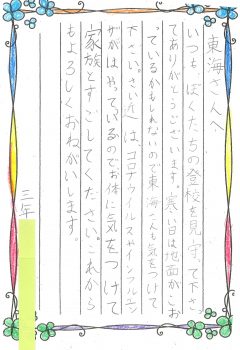 東海さんへ
いつも ぼくたちの登校を見守って下さっ
てありがとうございます。寒い日は地面がこお
っているかもしれないので東海さんも気をつけて
下さい。さい近は、コロナウイルスやインフルエン
ザがはやっているのでお体に気をつけて
家族とすごしてくださいこれから
もよろしくおねがいします。
三年